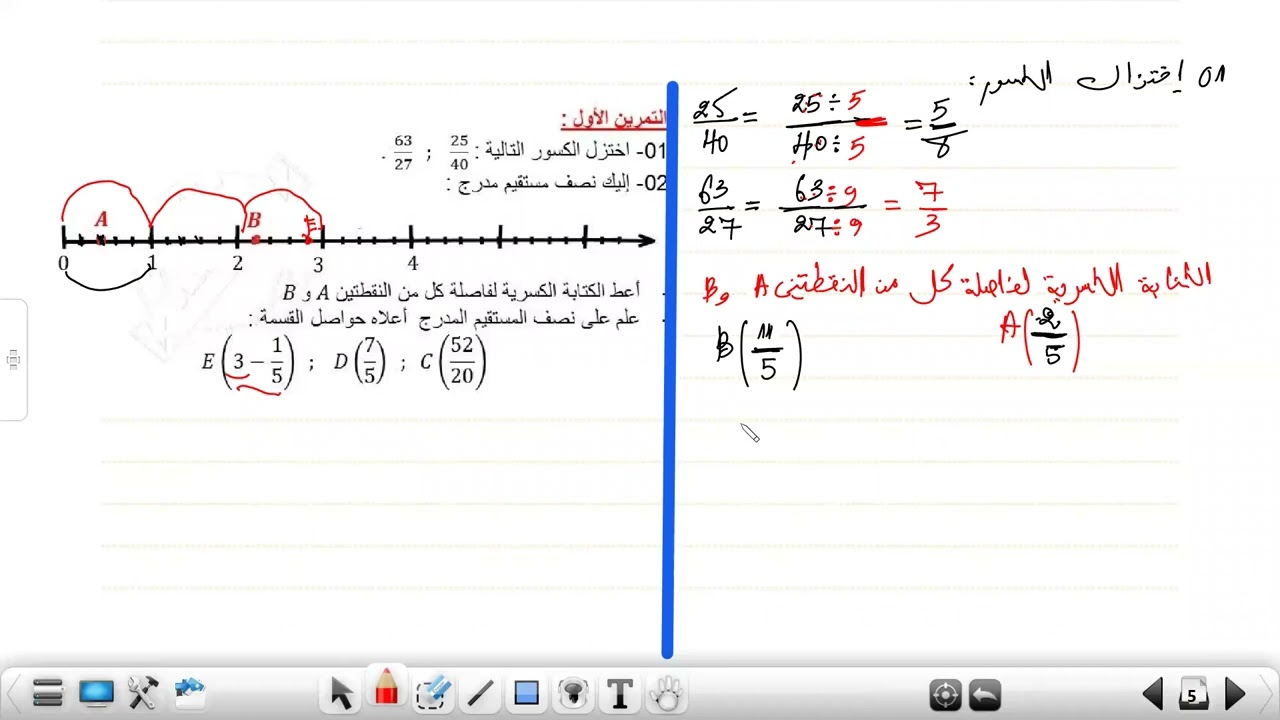 التمرين الأول :
01- اختزل الكسور التالية : 25/40 ; 63/27 .
02- إليك نصف مستقيم مدرج :
A B E
0 1 2 3 4
أعط الكتابة الكسرية لفاصلة كل من النقطتين A و B
علم على نصف المستقيم المدرج أعلاه حواصل القسمة :
E(3 − 1/5) ; D(7/5) ; C(52/20)
01 اختزال الكسور :
25/40 = 25÷5/40÷5 = 5/8
63/27 = 63÷9/27÷9 = 7/3
الكتابة الكسرية لفاصلة كل من النقطتين A و B
A(2/5)
B(11/5)
T
5